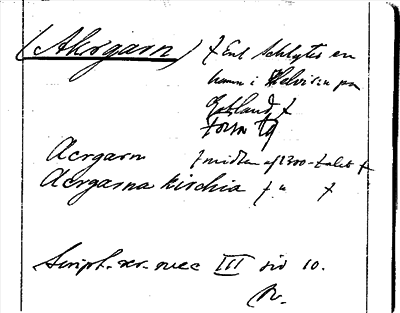 (Akrgarn) / Enl Schlyter en
hamn i Helvi sn på
Gotland /
Acrgarn / midten af 1300-talet /
Acrgarna kirchia / " /
Script. rer. svec III sid 10.